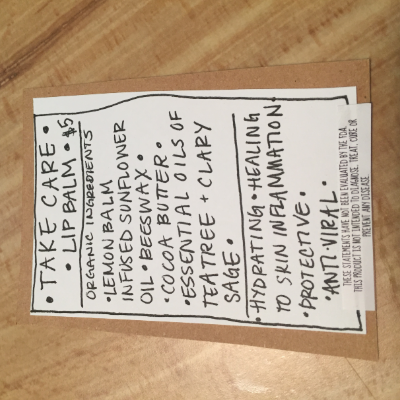 • TAKE CARE •
• LIP BALM • $5
ORGANIC INGREDIENTS
• LEMON BALM
INFUSED SUNFLOWER
OIL • BEESWAX •
• COCOA BUTTER •
• ESSENTIAL OILS OF
TEATREE + CLARY
SAGE •
• HYDRATING • HEALING
TO SKIN INFLAMMATION •
• PROTECTIVE •
• ANTI-VIRAL •
THESE STATEMENTS HAVE NOT BEEN EVALUATED BY THE FDA.
THIS PRODUCT IS NOT INTENDED TO DIAGNOSE, TREAT, CURE OR
PREVENT ANY DISEASE.